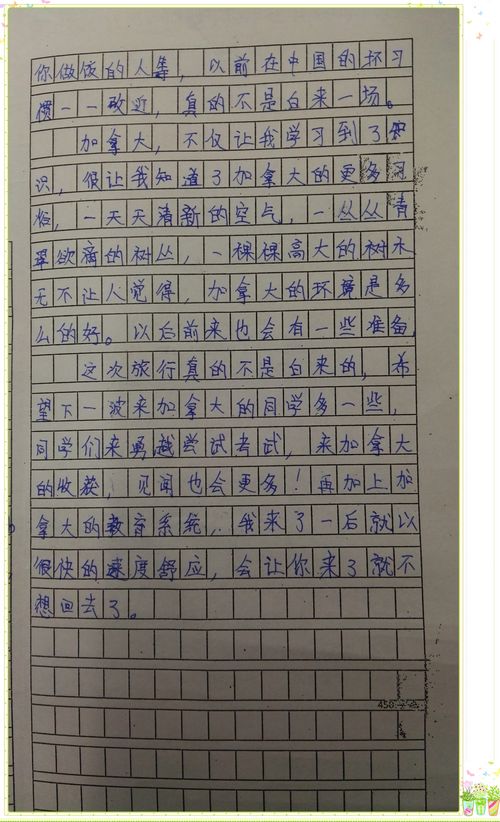 你做饭的人等，以前在中国的坏习
惯一一改近，真的不是白来一场。
加拿大，不仅让我学习到了知
识，很让我知道了加拿大的更多习
俗，一天天清新的空气，一丛丛青
翠欲滴的树丛，一棵棵高大的树木
无不让人觉得，加拿大的环境是多
么的好。以后前来也会有一些准备
这次旅行真的不是白来的，希
望下一波来加拿大的同学多一些，
同学们来勇越尝试考武，来加拿大
的收获，见闻也会更多！再加上加
拿大的教育系统，我来了一后就以
很快的速度舒应，会让你来了就不
想回去了。
450